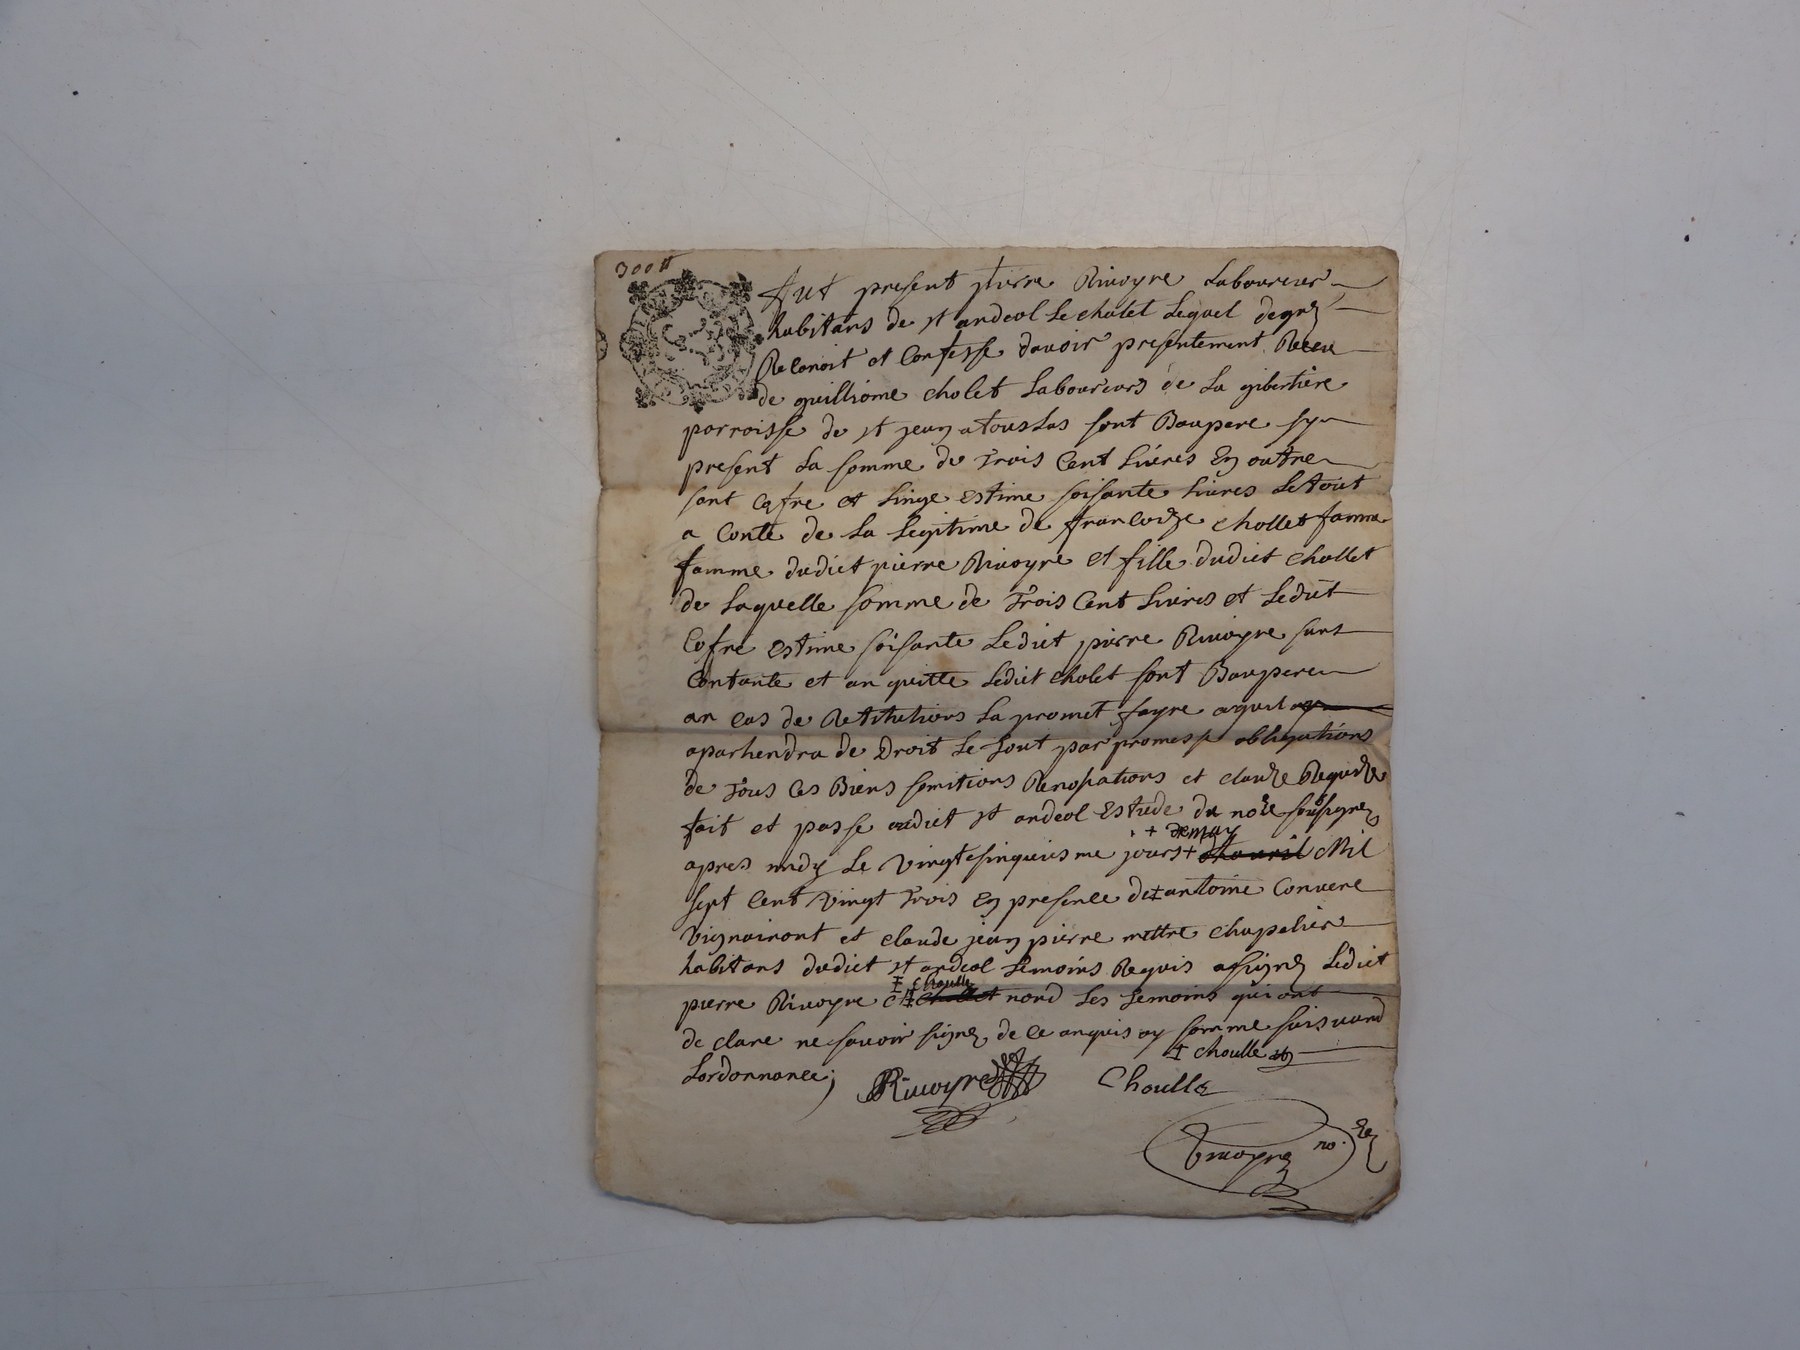 300 lt
fut present pierre Rivoyre Laboureur
habitans de st andeol le chatet Lequel degré
Reconoit et Confesse davoir presentement Receu
de guilliome cholet Laboureurs de La gibertiere
parroisse de st jean a touslas sont Baupere sy
present La somme de Trois Cent Livres En outre
sant Cofre et Linge estime soisante Livres Letout
a Conte de La Legitime de francoize chollet famme
famme dudict pierre Rivoyre et fille dudict chollet
de Laquelle somme de Trois Cent Livres et Ledict
Cofre estime soisante Ledict pierre Rivoyre sans
Contante et an quitte Ledict cholet sont Baupere
an cas de Retitutions La promet fayre aquil
apartiendra de Droit Le tout par promesse obligations
de Tous Ces Biens somitions Renosiations et clauze Requize
fait et passe audict st andeol Estude du nore sousigne
+ de may
apres midy Le Vingtesinquiesme jours + Mil
sept Cent Vingt Trois En presence de ‡ antoine Convere
Vignairont et claude jean pierre mettre chapelier
habitans dudict st andeol temoins Requis a signé Ledict
‡ choulle
pierre Rivoyre et ‡ chollet nond Les temoins qui ont
de clare ne savoir signe de ce anquis ay somme suivand
Lordonnance; ‡ choulle
Rivoyre Choulle
Rivoyre no.re